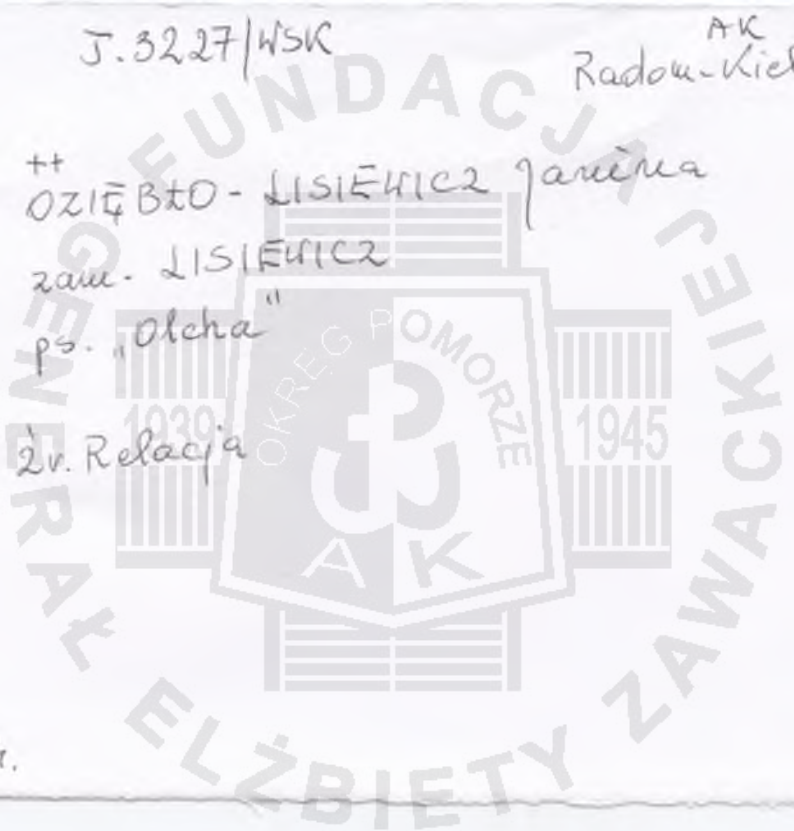 J.3227/WSK
AK
Radom-Kiel
++
OZIĘBŁO - LISIEWICZ Janina
zam. LISIEWICZ
ps. "Olcha"
źr. Relacja
FUNDACJA
GENERAŁ ELŻBIETY ZAWACKIEJ
OKRĘG POMORZE
1939
1945
AK